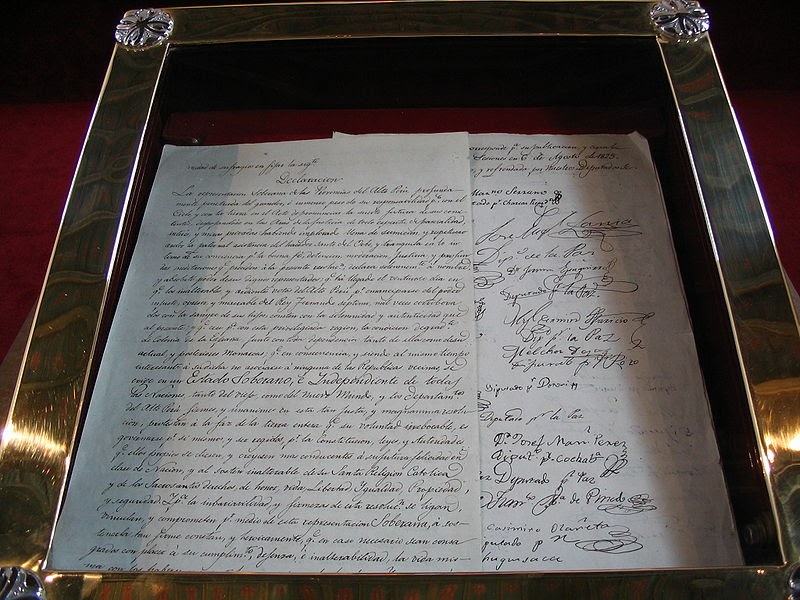 nidad de sufragios en fijar la sigte
Declaracion
La representacion Soberana de las Provincias del Alto Perú profunda-
mente penetrada del grandor, é inmenso peso de su responsabilidad pa. con el
Cielo, y con la tierra en el acto de pronunciar la suerte futura de sus comi-
tentes, despojandose en las Aras de la justicia de todo espiritu de parcialidad,
interés, y miras privadas; habiendo implorado, llena de sumicion, y respetuoso
ardor la paternal asistencia del hacedor Santo del Orbe, y tranquila en lo in-
timo de su conciencia pr. la buena fé, detencion, moderacion, Justicia, y profun-
das meditaciones qe. preciden á la presente resolucn., declara solemnemte. á nombre,
y absoluto poder de sus dignos representados: qe. ha llegado el venturoso dia en
qe. los inalterables, y ardientes votos del Alto Perú pr. emanciparse del poder
injusto, opresor, y miserable del Rey Fernando septimo, mil veces corrobora-
dos con la sangre de sus hijos, consten con la solemnidad, y autenticidad que
al presente, y qe. cese pa. con esta privilegiada region la condicion degradte.
de Colonia de la España, junto con toda dependencia, tanto de ella, como de su
actual, y posteriores Monarcas: qe. en consecuencia, y siendo al mismo tiempo
interesante á su dicha no asociarse á ninguna de las Republicas vecinas, se
erige en un Estado Soberano, é Independiente de todas
las Naciones, tanto del viejo, como del Nuevo Mundo, y los Departamtos.
del Alto Perú, firmes, y unanimes en esta tan justa, y magnanima resolu-
cion, protestan á la faz de la tierra entera, qe. su voluntad irrevocable, es
governarse pr. si mismos, y ser regidos pr. la Constitucion, leyes, y Autoridades
qe. ellos propios se diesen, y creyesen mas conducentes á su futura felicidad en
clase de Nacion, y al sosten inalterable de su Santa Religion Catolica,
y de los Sacrosantos derechos, de honor, vida, Libertad, Igualdad, Propiedad,
y seguridad. Ya. pa. la invariabilidad, y firmeza de esta resolucn. se ligan,
vinculan, y comprometen, pr. medio de esta representacion Soberana, á sos-
tenerla tan firme, constante, y heroycamente, qe. en caso necesario sean consa-
grados con placer á su cumplimto., defensa, é inalterabilidad, la vida mis-
ma con los haberes
corresponde pa. su publicacion, y circula
Sesiones en 6 de Agosto de 1825
y refrendada por nuestros Diputados
Mariano Serrano
tado pr. Charcas
Jose Miguel Lanza
Dipo. de La Paz
Diputado pr. la Paz
Dip pr. la Paz
Melchor
Diputado pr. Potosi
Diputado pr. la Paz
Josef Man. Perez
Diput. pr. Cochaba.
Diputado pr. Paz
Casimiro Olañeta
putado pr
huquisaca